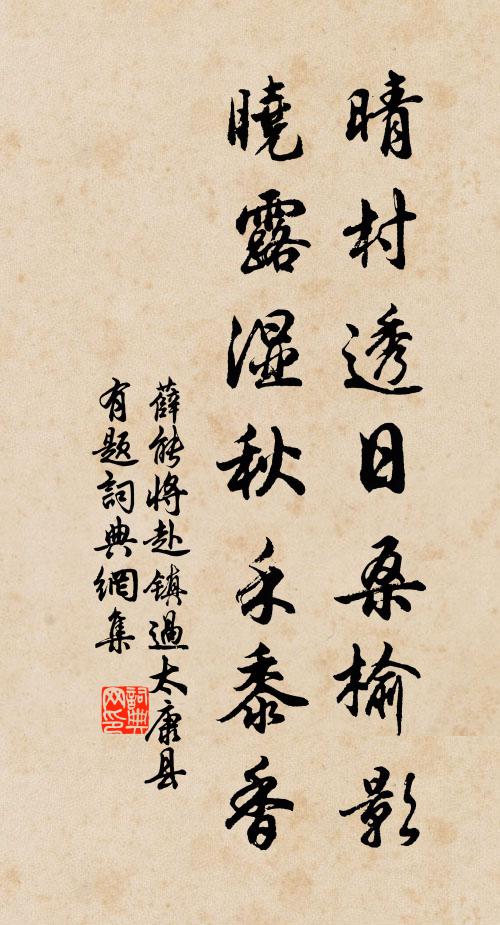 晴村透日桑榆影
曉露湿秋禾黍香
薛能将赴镇過太康县
有题詞典網集
詞典
网印